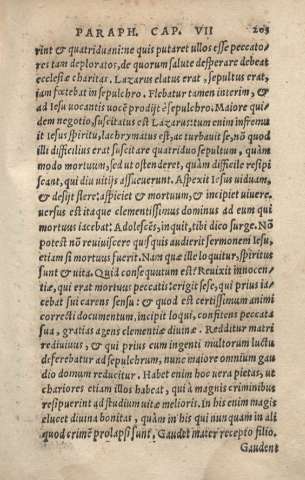 PARAPH. CAP. VII 203
rint & quatriduani: ne quis putaret ullos esse peccato-
res tam deploratos, de quorum salute desperare debeat
ecclesiæ charitas. Lazarus elatus erat, sepultus erat,
iam fœtebat in sepulchro. Flebatur tamen interim, &
ad Iesu uocantis uocē prodijt è sepulchro. Maiore qui-
dem negotio, suscitatus est Lazarus: tum enim infremu-
it Iesus spiritu, lachrymatus est, ac turbauit se, nō quod
illi difficilius erat suscitare quatriduo sepultum, quàm
modo mortuum, sed ut ostenderet, quàm difficile resipi
scant, qui diu uitijs assueuerunt. Aspexit Iesus uiduam,
& desijt flere: aspiciet & mortuum, & incipiet uiuere.
uersus est itaque clementissimus dominus ad eum qui
mortuus iacebat: Adolescēs, inquit, tibi dico surge. Nō
potest nō reuiuiscere quisquis audierit sermonem Iesu,
etiam si mortuus fuerit. Nam quæ ille loquitur, spiritus
sunt & uita. Quid consequutum est? Reuixit innocen-
tiæ, qui erat mortuus peccatis: erigit sese, qui prius ia-
cebat sui carens sensu: & quod est certissimum animi
correcti documentum, incipit loqui, confitens peccata
sua, gratias agens clementiæ diuinæ. Redditur matri
rediuiuus, & qui prius cum ingenti multorum luctu
deferebatur ad sepulchrum, nunc maiore omnium gau
dio domum reducitur. Habet enim hoc uera pietas, ut
chariores etiam illos habeat, qui à magnis criminibus
resipuerint ad studium uitæ melioris. In his enim magis
elucet diuina bonitas, quàm in his qui nunquam in ali
quod crimē prolapsi sunt. Gaudet mater recepto filio.
Gaudent